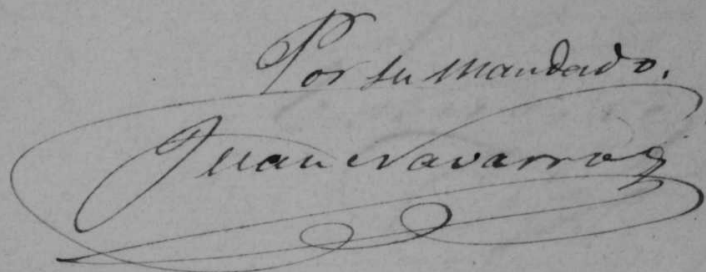 Por su mandado.
Juan Navarro